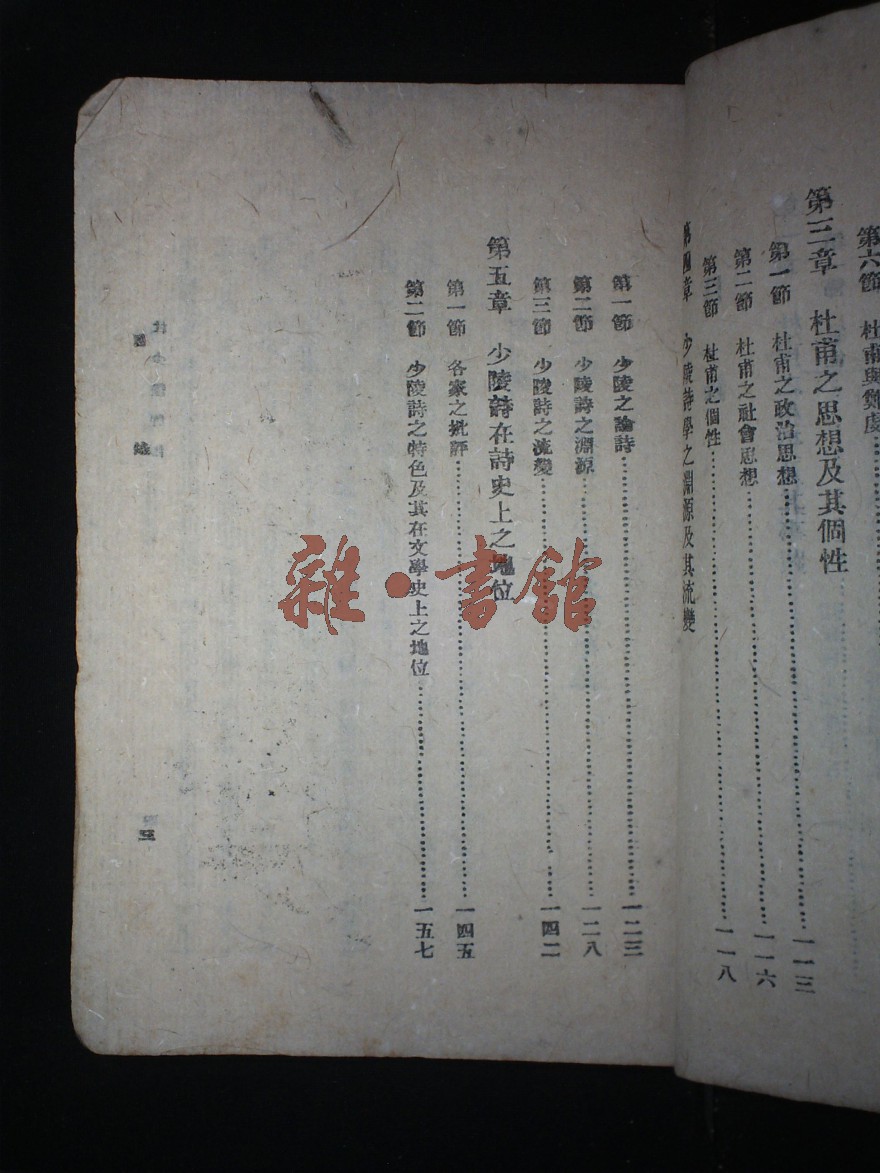 第六節 杜甫與
第三章 杜甫之思想及其個性
第一節 杜甫之政治思想……一一三
第二節 杜甫之社會思想……一一六
第三節 杜甫之個性……一一八
第四章 少陵詩學之淵源及其流變
第一節 少陵之論詩……一二三
第二節 少陵詩之淵源……一二八
第三節 少陵詩之流變……一四二
第五章 少陵詩在詩史上之地位
第一節 各家之批評……一四五
第二節 少陵詩之特色及其在文學史上之地位……一五七
雜·書館